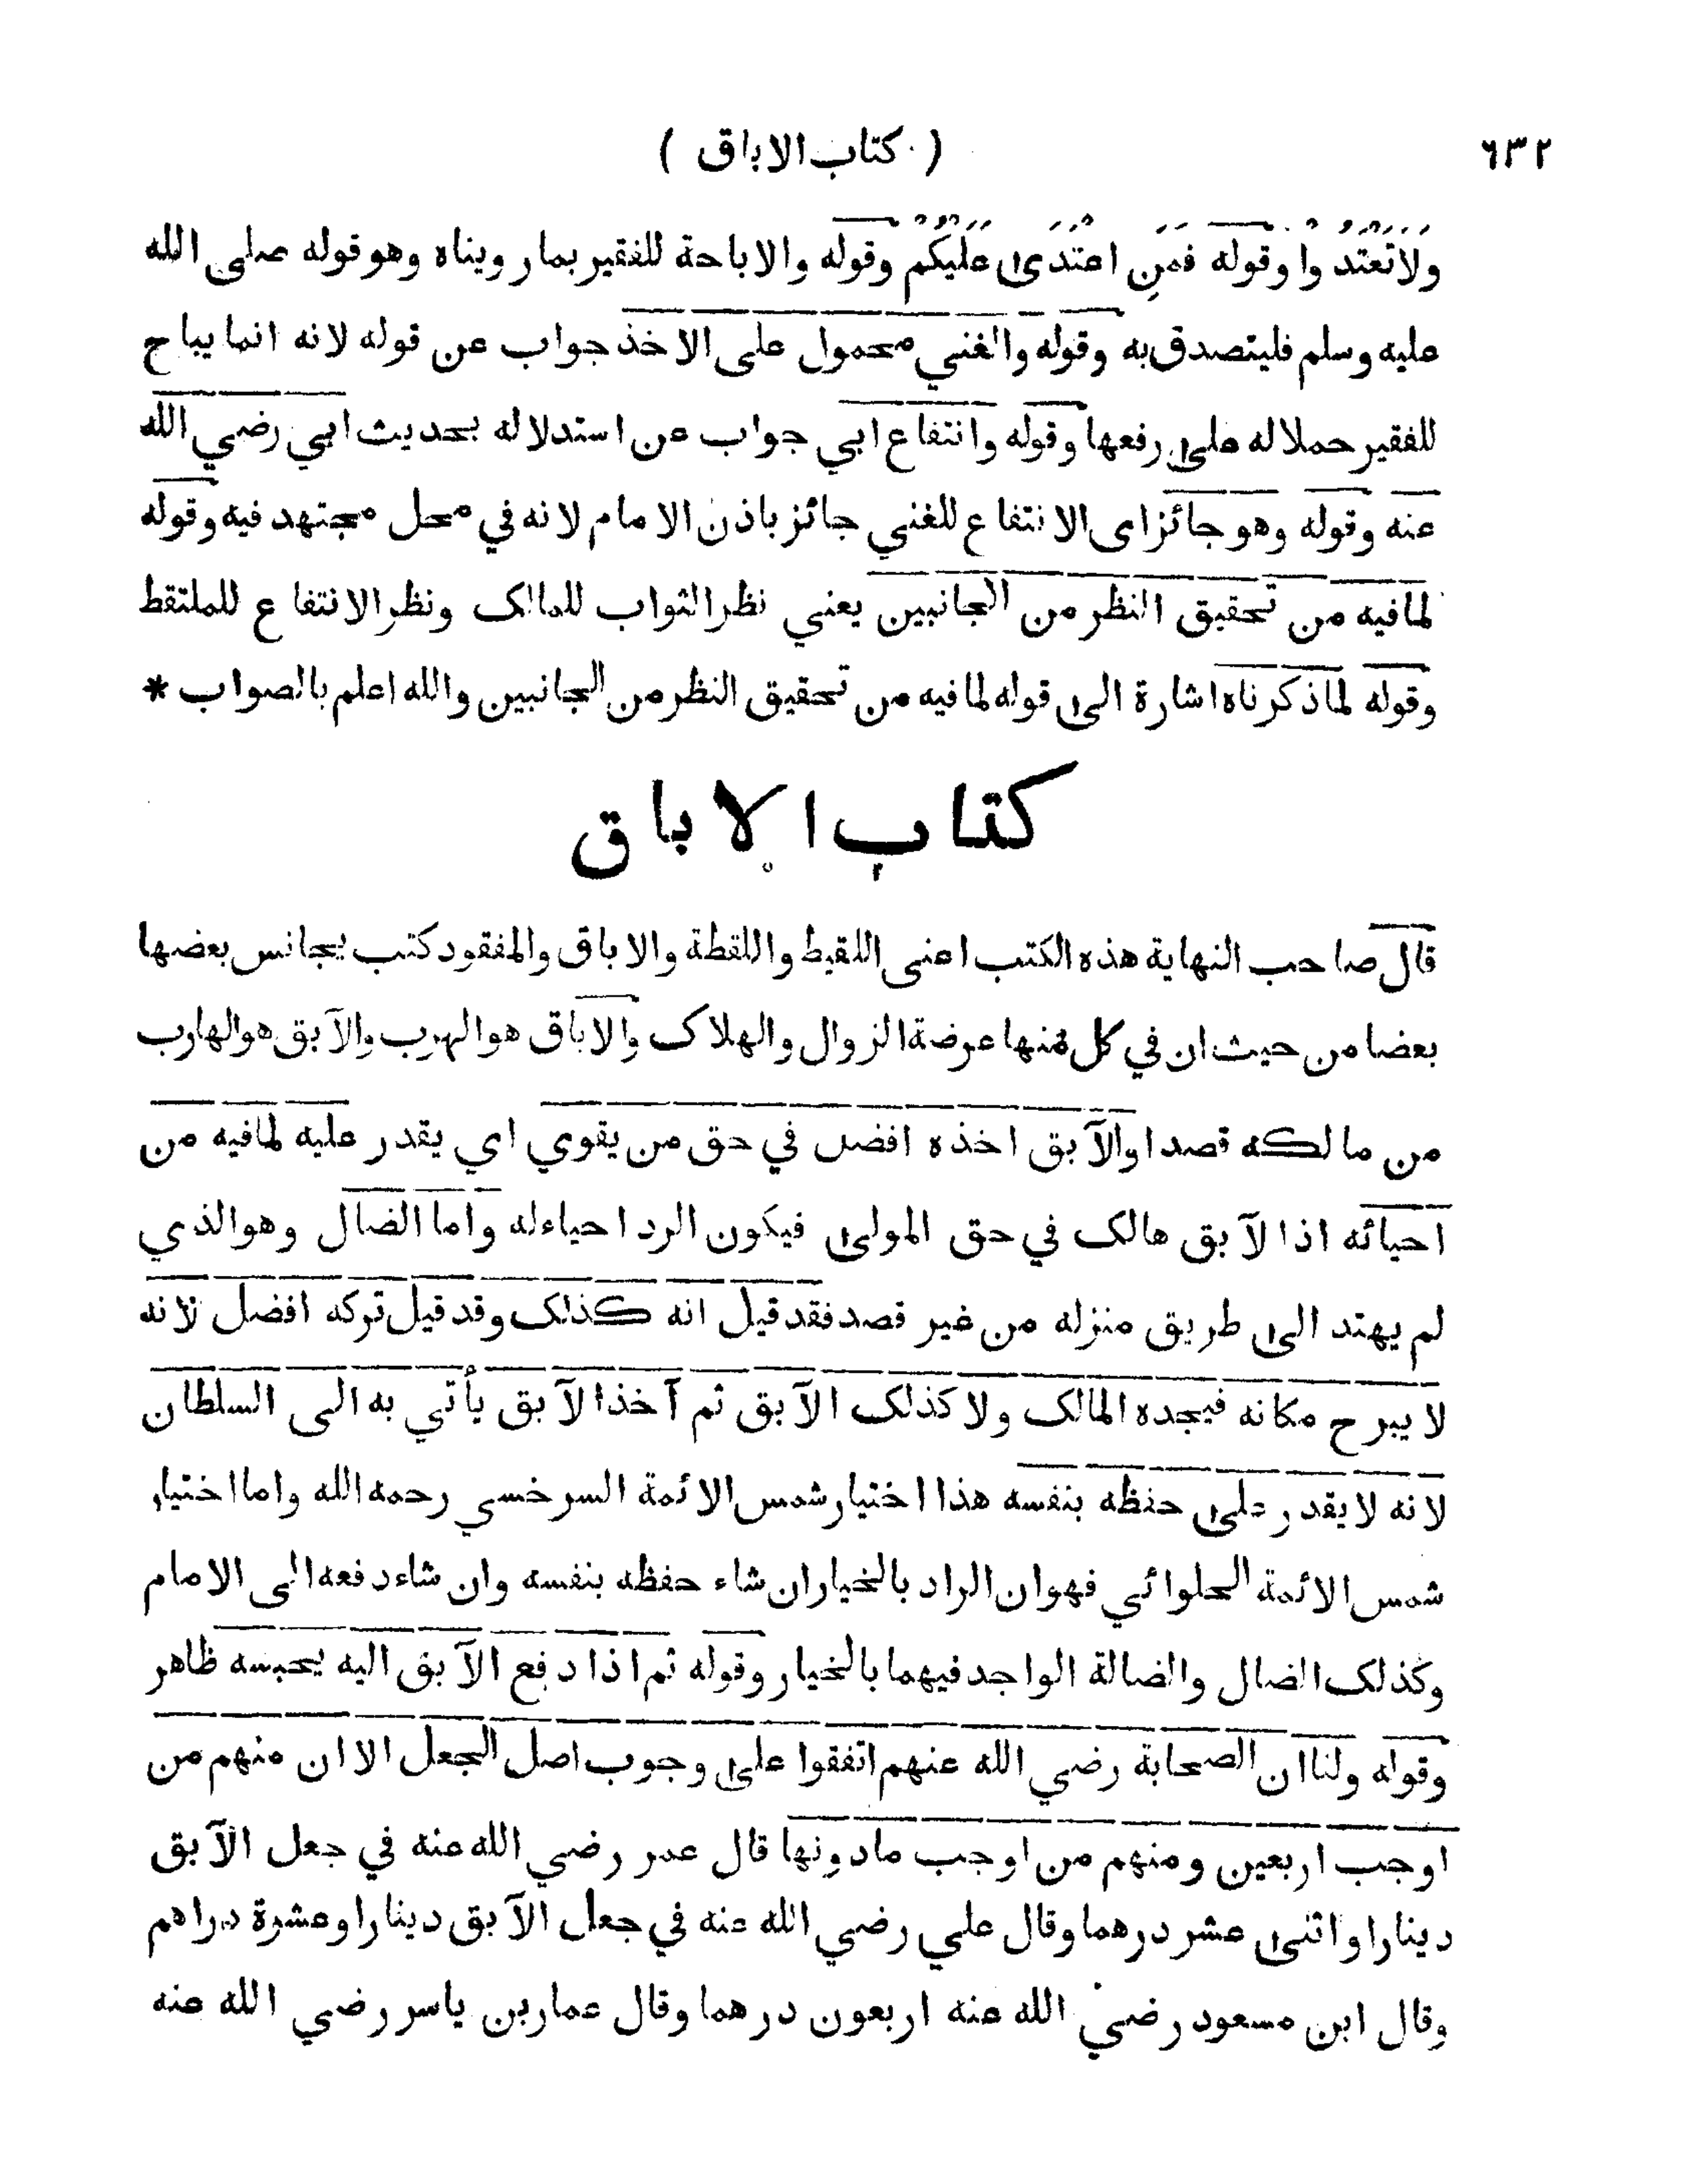 ٦٣٢
( كتاب الاباق )
وَلَاتَعْتَدُ وا وقوله فَمَنِ اعْتَدَىٰ عَلَيْكُمْ وقوله والاباحة للفقير بمار ويناه وهو قوله صلى الله
عليه وسلم فليتصدق به وقوله والغني محمول على الاخذ جواب عن قوله لانه انما يباح
للفقير حملا له على رفعها وقوله وانتفاع ابي جواب عن استدلاله بحديث ابي رضي الله
عنه وقوله وهو جائز اى الانتفاع للغني جائز باذن الامام لانه في محل مجتهد فيه وقوله
لمافيه من تحقيق النظر من الجانبين يعني نظر الثواب للمالك ونظر الانتفاع للملتقط
وقوله لماذكرناه اشارة الى قوله لمافيه من تحقيق النظر من الجانبين والله اعلم بالصواب *
كتاب الاباق
قال صاحب النهاية هذه الكتب اعنى اللقيط واللقطة والاباق والمفقود كتب يجانس بعضها
بعضا من حيث ان في كل منها عرضة الزوال والهلاك والاباق هو الهرب والآبق هو الهارب
من مالكه قصدا والآبق اخذه افضل في حق من يقوي اي يقدر عليه لمافيه من
احيائه اذا لآبق هالك في حق المولى فيكون الرد احياءله واما الضال وهو الذي
لم يهتد الى طريق منزله من غير قصد فقد قيل انه كذلك وقد قيل تركه افضل لانه
لا يبرح مكانه فيجده المالك ولا كذلك الآبق ثم آخذ الآبق يأتي به الى السلطان
لانه لا يقدر على حفظه بنفسه هذا اختيار شمس الائمة السرخسي رحمه الله واما اختيار
شمس الائمة الحلوائي فهو ان الراد بالخيار ان شاء حفظه بنفسه وان شاء دفعه الى الامام
وكذلك الضال والضالة الواجد فيهما بالخيار وقوله ثم اذا دفع الآبق اليه يحبسه ظاهر
وقوله ولنا ان الصحابة رضي الله عنهم اتفقوا على وجوب اصل الجعل الا ان منهم من
اوجب اربعين ومنهم من اوجب مادونها قال عمر رضي الله عنه في جعل الآبق
دينارا واثنى عشر درهما وقال علي رضي الله عنه في جعل الآبق دينارا وعشرة دراهم
وقال ابن مسعود رضي الله عنه اربعون درهما وقال عمار بن ياسر رضي الله عنه